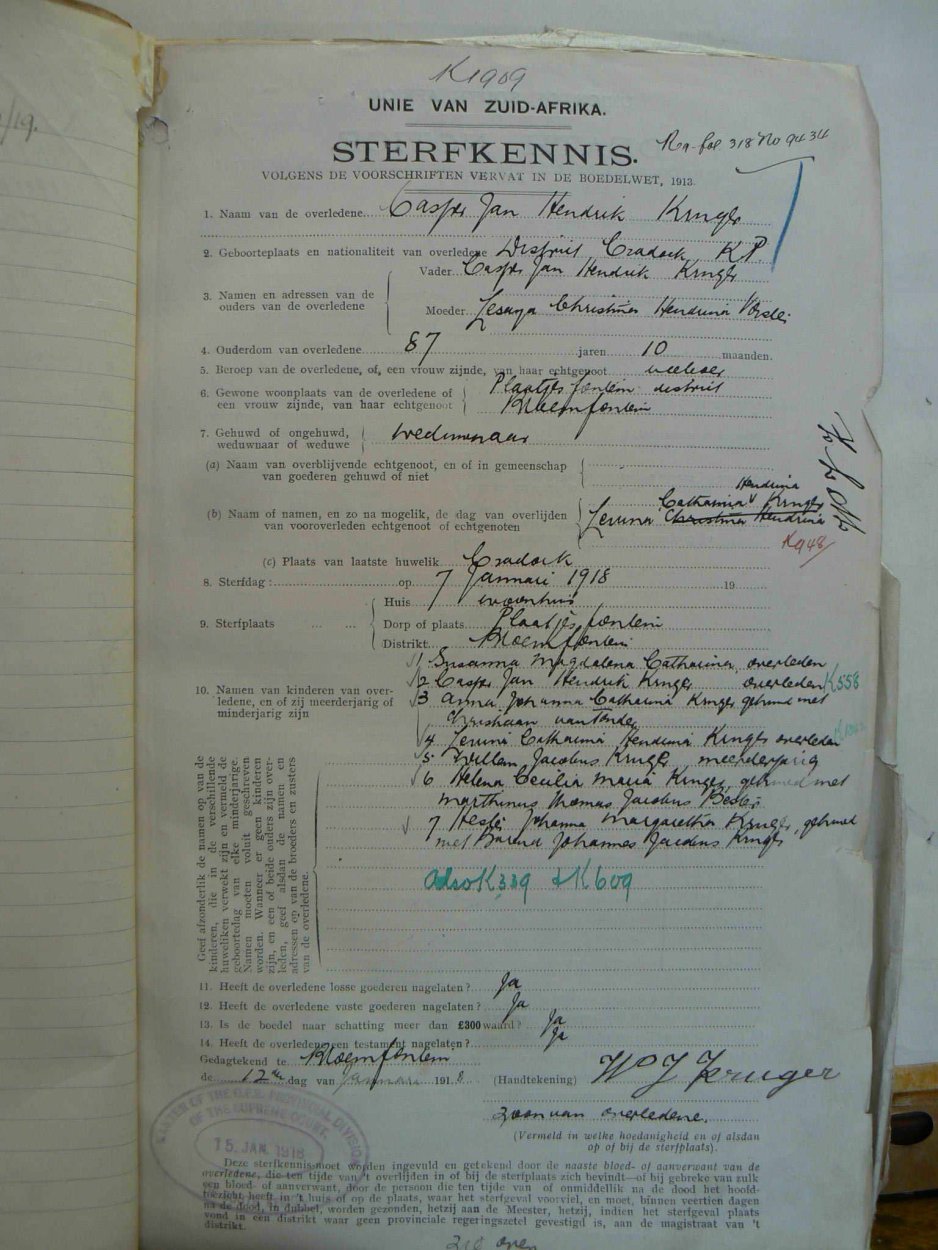 K1909
UNIE VAN ZUID-AFRIKA.
STERFKENNIS.
318 No 9434
VOLGENS DE VOORSCHRIFTEN VERVAT IN DE BOEDELWET, 1913.
1. Naam van de overledene Casper Jan Hendrik Kruger
2. Geboorteplaats en nationaliteit van overledene District Cradock K.P.
3. Namen en adressen van de ouders van de overledene
Vader Casper Jan Hendrik Kruger
Moeder Lesaya Christina Hendrina Vorster
4. Ouderdom van overledene 87 jaren 10 maanden.
5. Beroep van de overledene, of, een vrouw zijnde, van haar echtgenoot
6. Gewone woonplaats van de overledene of een vrouw zijnde, van haar echtgenoot
Plaatjesfontein district
Bloemfontein
7. Gehuwd of ongehuwd, weduwnaar of weduwe
weduwnaar
(a) Naam van overblijvende echtgenoot, en of in gemeenschap van goederen gehuwd of niet
(b) Naam of namen, en zo na mogelik, de dag van overlijden van vooroverleden echtgenoot of echtgenoten
Hendrina
Catharina Kruger
Christina Hendrina
K948
(c) Plaats van laatste huwelik Cradock
8. Sterfdag: op 7 Januari 1918 19
9. Sterfplaats
Huis woonhuis
Dorp of plaats Plaatjesfontein
Distrikt Bloemfontein
10. Namen van kinderen van overledene, en of zij meerderjarig of minderjarig zijn
1 Susanna Magdalena Catharina, overleden
2 Casper Jan Hendrik Kruger overleden K558
3 Anna Johanna Catharina Kruger gehuwd met
Christiaan van Tonder
4 Catharina Hendrina Kruger overleden
5 Willem Jacobus Kruger meerderjarig
6 Helena Cecilia Maria Kruger, gehuwd met
Marthinus Thomas Jacobus Bester
7 Hester Johanna Margaretha Kruger, gehuwd
met Barend Johannes Jacobus Kruger
Also K339 & K609
Geef afzonderlik de namen op van de
kinderen, die in de verschillende
huweliken verwekt zijn en vermeld de
geboortedag van elke minderjarige.
Namen moeten voluit geschreven
worden. Wanneer er geen kinderen
zijn, en een of beide ouders zijn over-
leden, geef alsdan de namen en
adressen op van de broeders en zusters
van de overledene.
11. Heeft de overledene losse goederen nagelaten? Ja
12. Heeft de overledene vaste goederen nagelaten? Ja
13. Is de boedel naar schatting meer dan £300 waard? Ja
14. Heeft de overledene een testament nagelaten? Ja
Gedagtekend te Bloemfontein
de 12de dag van Januari 1918
(Handtekening) W J Kruger
zoon van overledene.
(Vermeld in welke hoedanigheid en of alsdan
op of bij de sterfplaats).
MASTER OF THE O.F.S. PROVINCIAL DIVISION
OF THE SUPREME COURT.
15. JAN. 1918
Deze sterfkennis moet worden ingevuld en getekend door de naaste bloed- of aanverwant van de
overledene, die ten tijde van 't overlijden in of bij de sterfplaats zich bevindt—of bij gebreke van zulk
een bloed- of aanverwant, door de persoon die ten tijde van of onmiddellik na de dood het hoofd-
toezicht heeft in 't huis of op de plaats, waar het sterfgeval voorviel, en moet, binnen veertien dagen
na de dood, in dubbel, worden gezonden, hetzij aan de Meester, hetzij, indien het sterfgeval plaats
vond in een distrikt waar geen provinciale regeringszetel gevestigd is, aan de magistraat van 't
distrikt.